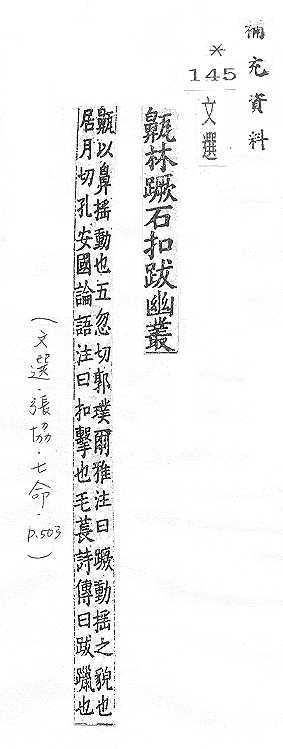 補充資料
*
145
文選
鼿林蹶石扣跋幽叢
鼿以鼻搖動也五忽切郭璞爾雅注曰蹶動搖之貌也
居月切孔安國論語注曰扣擊也毛萇詩傳曰跋躐也
(文選·張協·七命·p.503)